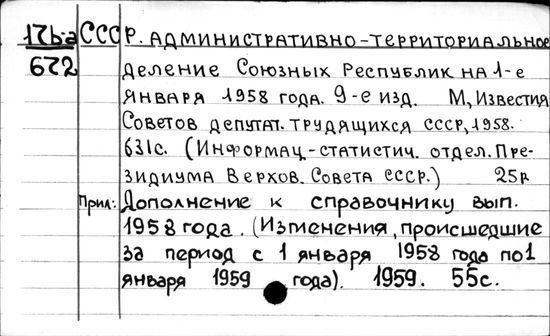 17b-a СССР. АДМИНИСТРАТИВНО-ТЕРРИТОРИАЛЬНОЕ
672 деление Союзных Республик на 1-е
января 1958 года. 9-е изд. М, Известия
Советов депутат. трудящихся СССР, 1958.
631с. (Информац.-статистич. отдел. Пре-
зидиума Верхов. Совета СССР.) 25р
Прил: Дополнение к справочнику вып.
1958 года. (Изменения, происшедшие
за период с 1 января 1958 года по 1
января 1959 года). 1959. 55с.